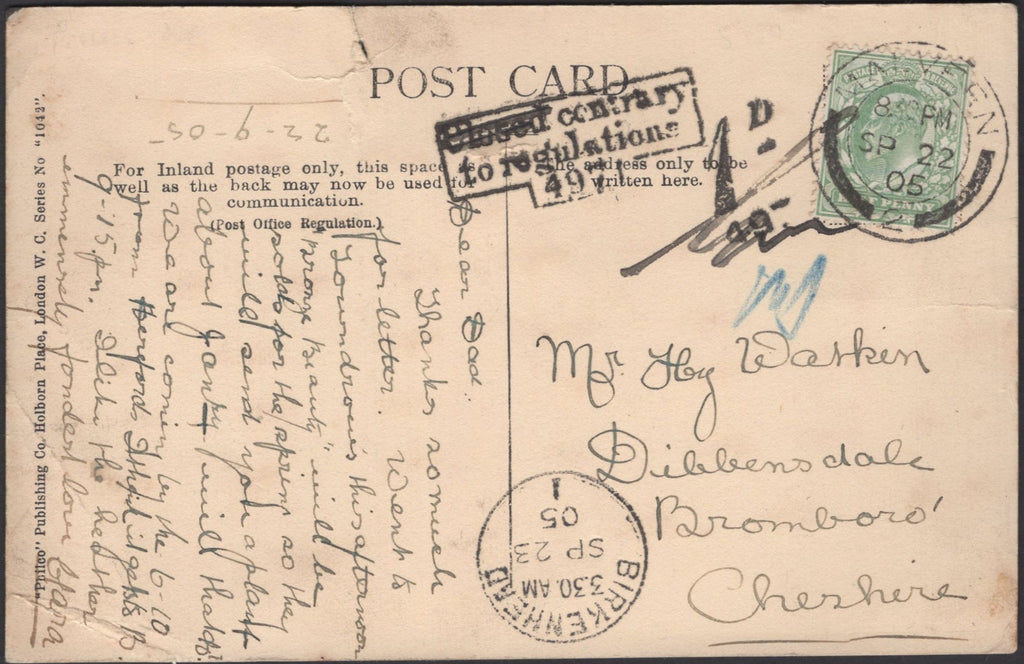 POST CARD
22-9-05
For Inland postage only, this space as
well as the back may now be used for
communication.
(Post Office Regulation.)
The address only to be
written here.
"Philco" Publishing Co. Holborn Place, London W. C. Series No "1042".
Closed contrary
to regulations
497
1D
49
MALVERN
8 PM
SP 22
05
BIRKENHEAD
3.30 AM
SP 23
05
1
Mr. Hy Watkin
Dibbensdale
Bromboro'
Cheshire
Dear Dad.
Thanks so much
for letter. Went to
this afternoon
Bronze Beauty will be
sold for the spring so they
will send you a plant
about Jany will that do.
We are coming by the 6-10
from Hereford &
9-15 pm. I like the heather
immensely fondest love Clara